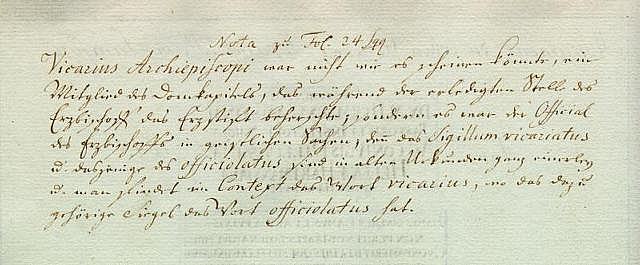 Nota zu Fol. 24
Vicarius Archiepiscopi war nicht wie es scheinen könnte, ein
Mitglied des Domkapitels, das während der erledigten Stelle des
Erzbischofs das Erzstift beherschte, sondern es war der Official
des Erzbischoffs in geistlichen Sachen, den das Sigillum vicariatus
u. dasjenige des officiolatus sind in alten Urkunden ganz einerley
u. man findet im Context das Wort vicarius, wo das dazu
gehörige Siegel das Wort officiolatus hat.